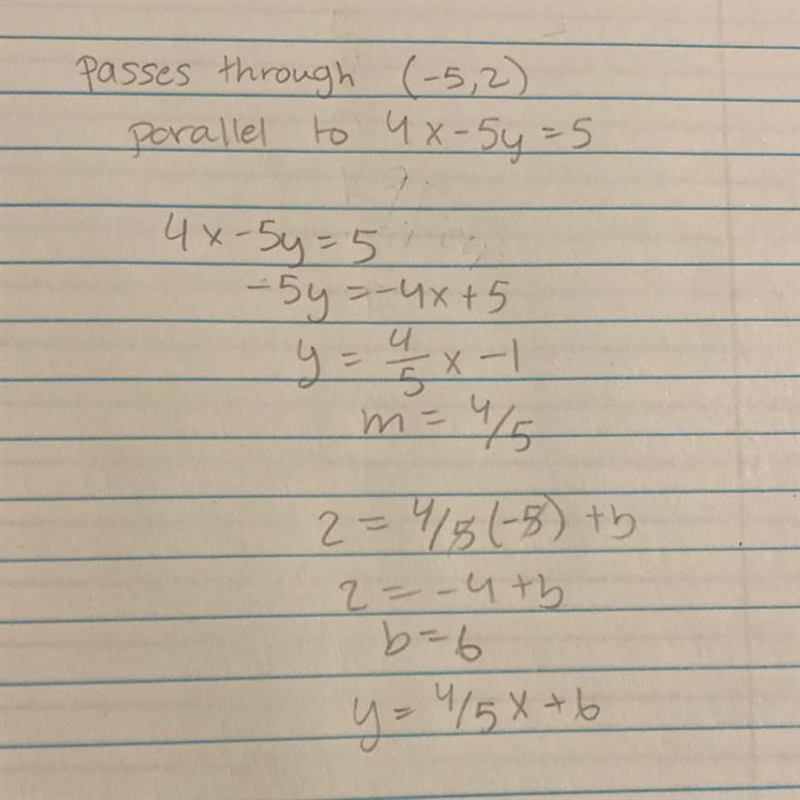 passes through (-5,2)
parallel to 4x-5y=5
4x-5y=5
-5y=-4x+5
y = 4/5 x -1
m = 4/5
2 = 4/5(-5) +b
2 = -4+b
b=6
y = 4/5 x + 6